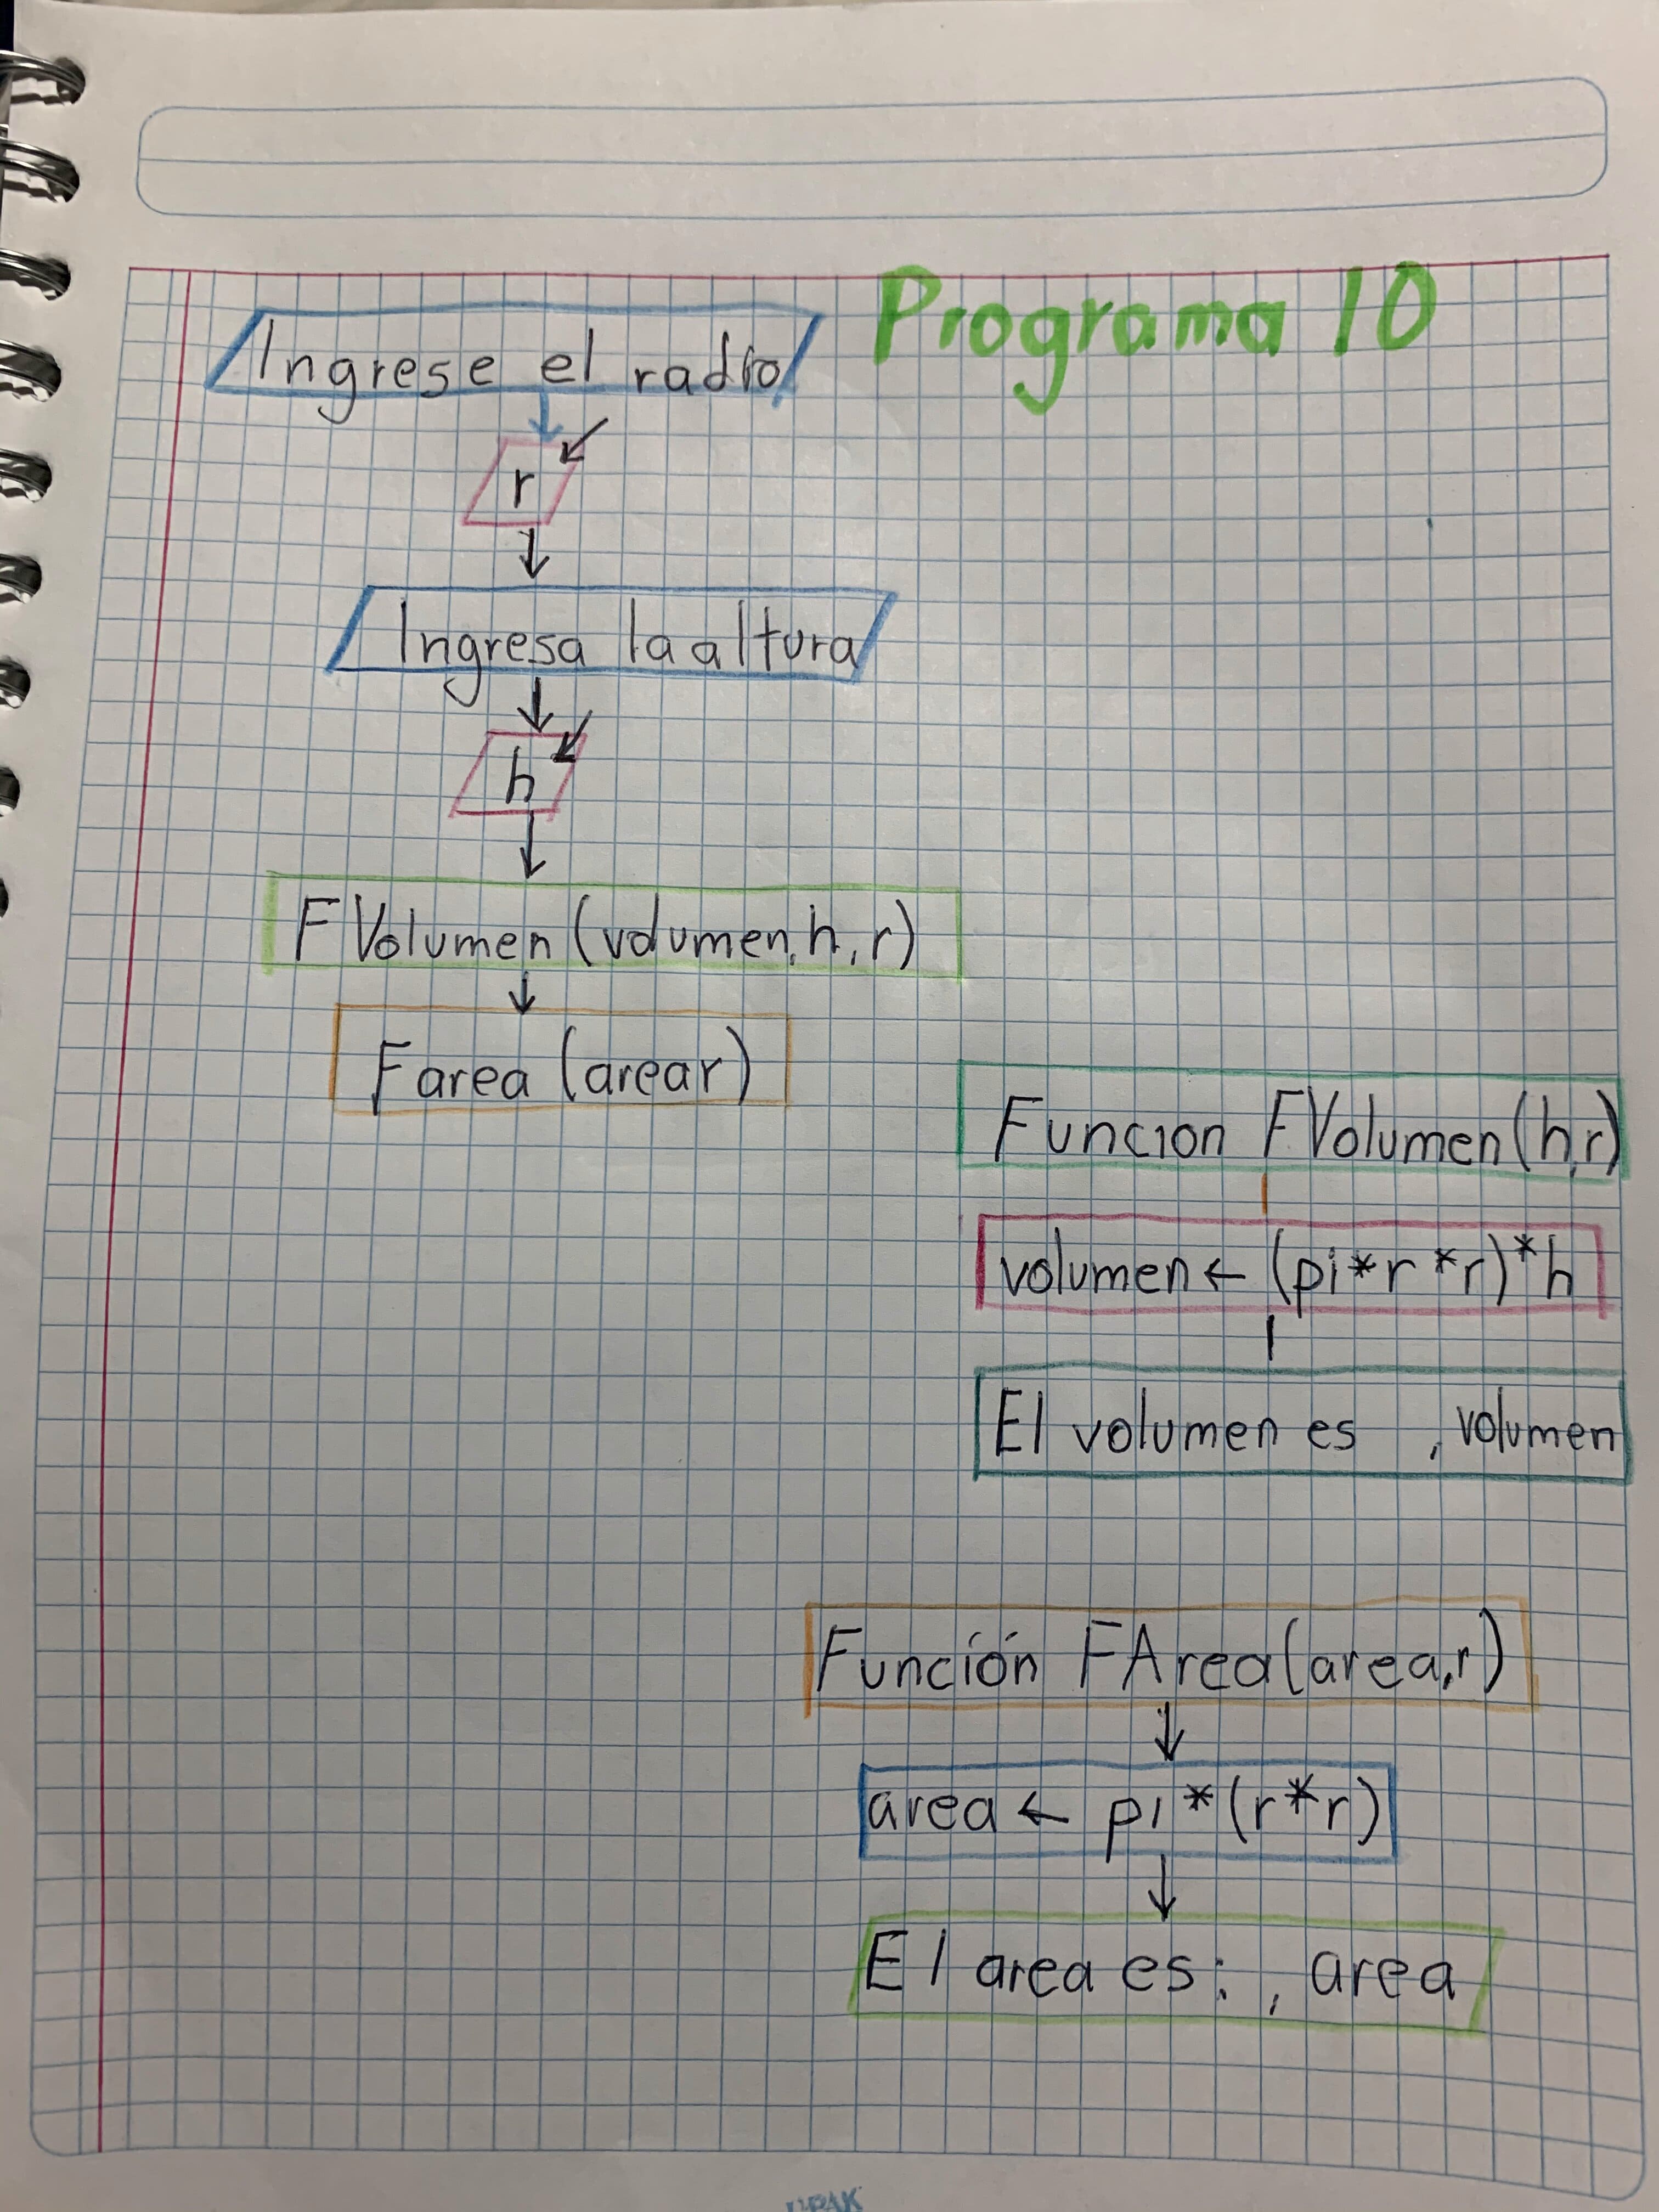 Programa 10
Ingrese el radio
r
Ingresa la altura
h
FVolumen (volumen, h, r)
Farea (area r)
Funcion FVolumen (h, r)
volumen ← (pi * r * r) * h
El volumen es , volumen
Función FArea (area, r)
area ← pi * (r * r)
El area es: , area